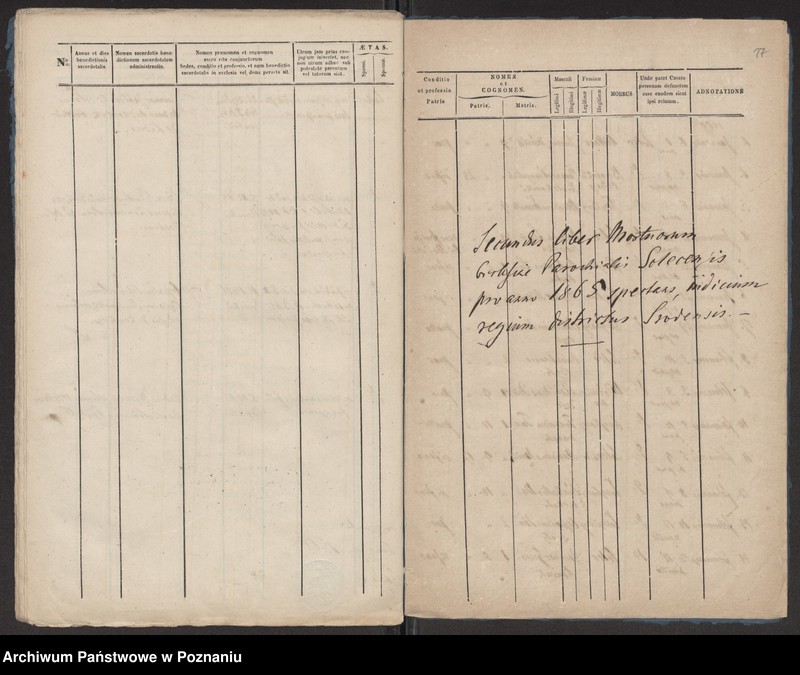 No.
Annus et dies
benedictionis
sacerdotalis.
Nomen sacerdotis bene-
dictionem sacerdotalem
administrantis.
Nomen prænomen et cognomen
sacro ritu conjunctorum
Sedes, conditio et professio, et num benedictio
sacerdotalis in ecclesia vel domi peracta sit.
Utrum jam prius con-
jugium inierint, nec
non utrum adhuc sub
potestate parentum
vel tutorum sint.
ÆTAS.
Sponsi.
Sponsæ.
77
Conditio
et professio
Patris
NOMEN
et
COGNOMEN.
Patris.
Matris.
Masculi
Legitimi
Illegitimi
Feminæ
Legitimæ
Illegitimæ
MORBUS
Unde patet Curato
personam defunctam
esse eandem sicut
ipsi relatum.
ADNOTATIONE
Secundus liber Mortuorum
Ecclesiæ Parochialis Solecensis
pro anno 1865 spectans, indicium
regium districtus Srodensis. —
Archiwum Państwowe w Poznaniu